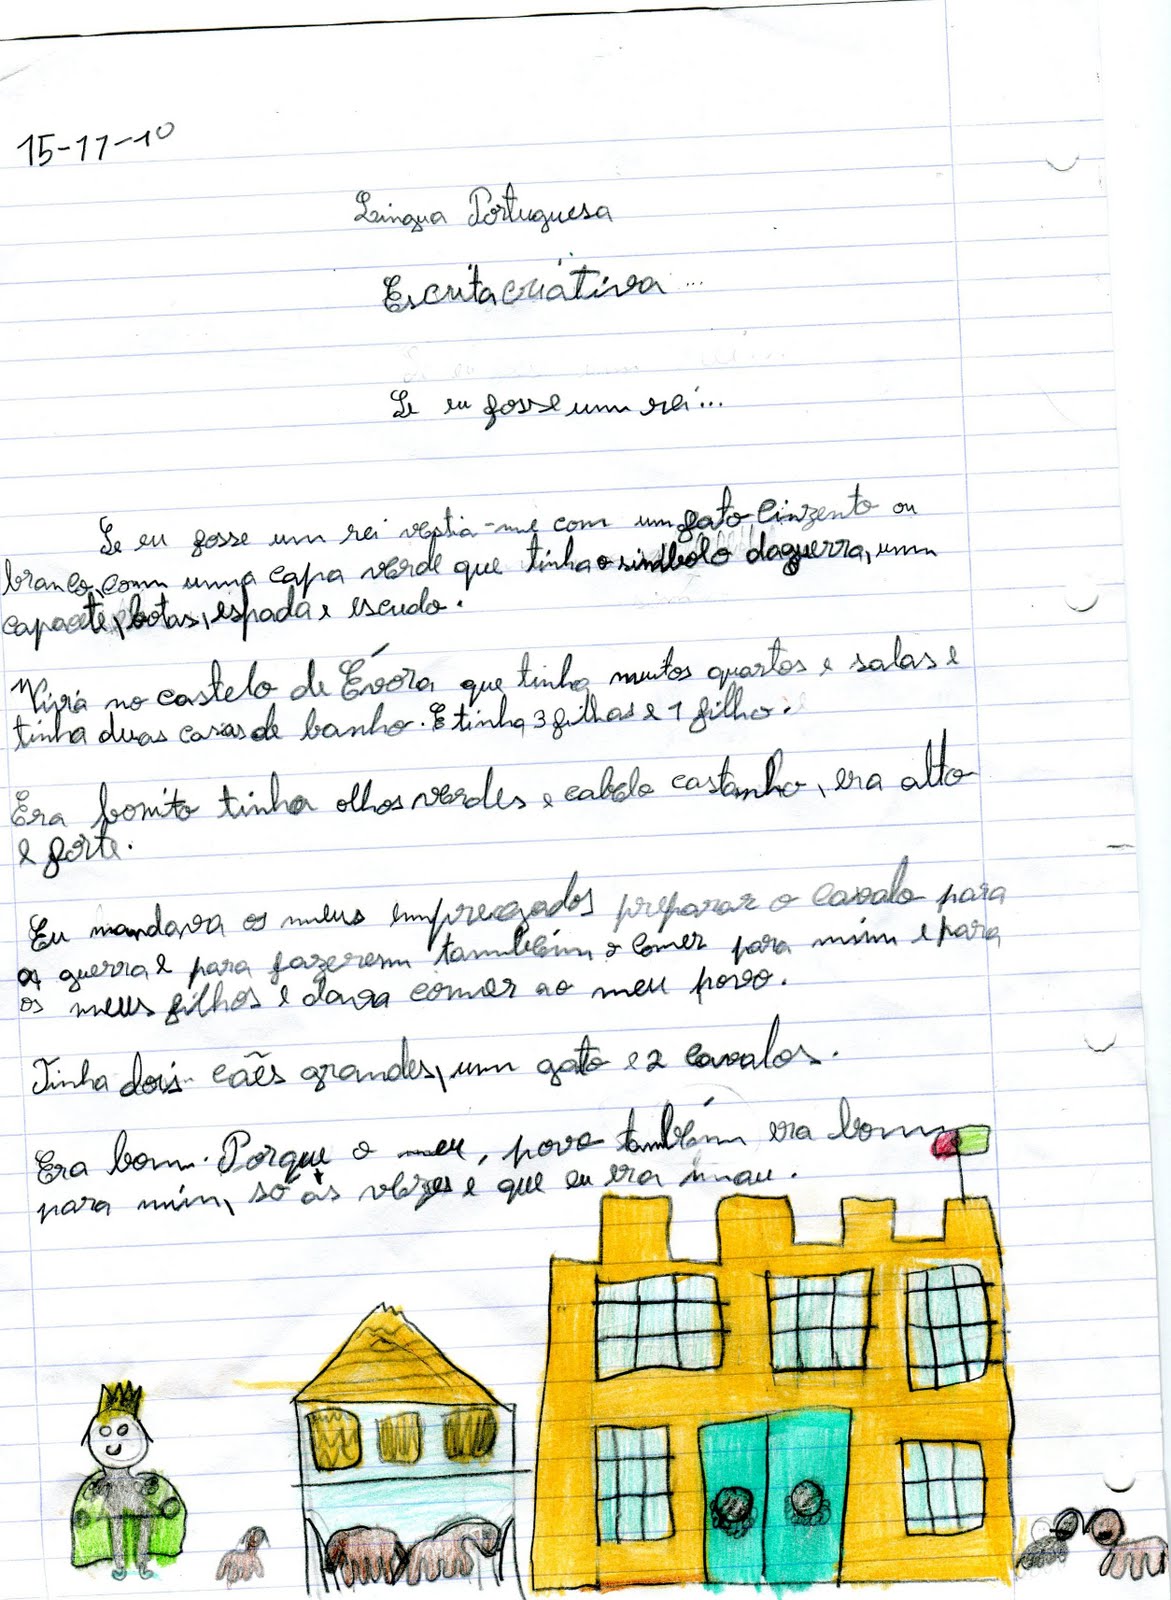 15-11-10
Língua Portuguesa
Escrita criativa...
Se eu fosse um rei...
Se eu fosse um rei vestia-me com um fato cinzento ou
branco, com uma capa verde que tinha o simbolo da guerra, um
capacete, botas, espada e escudo.
Vivia no castelo de Évora que tinha muitos quartos e salas e
tinha duas casas de banho. E tinha 3 filhas e 1 filho.
Era bonito tinha olhos verdes e cabelo castanho, era alto
e forte.
Eu mandava os meus empregados preparar o cavalo para
a guerra e para fazerem também o comer para mim e para
os meus filhos e dava comer ao meu povo.
Tinha dois cães grandes, um gato e 2 cavalos.
Era bom. Porque o meu, povo também era bom
para mim, só às vezes e que eu era mau.